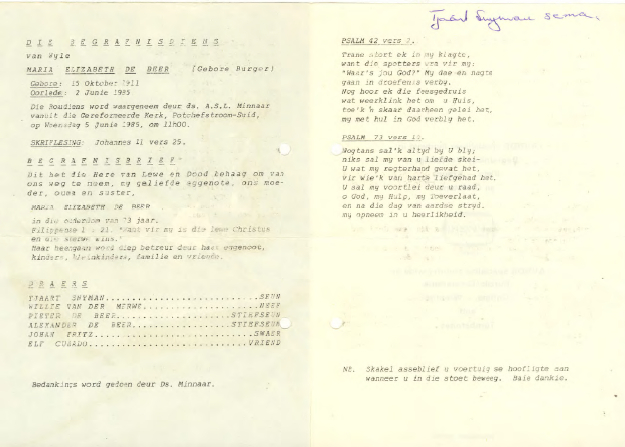 DIE BEGRAFNISDIENS
van Wyle
MARIA ELIZABETH DE BEER (Gebore Burger)
Gebore: 15 Oktober 1911
Oorlede: 2 Junie 1985
Die Roudiens word waargeneem deur ds. A.S.L. Minnaar
vanuit die Gereformeerde Kerk, Potchefstroom-Suid,
op Woensdag 5 Junie 1985, om 11h00.
SKRIFLESING: Johannes 11 vers 25.
BEGRAFNISBRIEF
Dit het die Here van Lewe en Dood behaag om van
ons weg te neem, my geliefde eggenote, ons moe-
der, ouma en suster,
MARIA ELIZABETH DE BEER
in die ouderdom van 73 jaar.
Filippense 1 : 21. "Want vir my is die lewe Christus
en die sterwe wins."
Haar heengaan word diep betreur deur haar eggenoot,
kinders, kleinkinders, familie en vriende.
DRAERS
TJAART SNYMAN..........................SEUN
WILLIE VAN DER MERWE...................NEEF
PIETER DE BEER.....................STIEFSEUN
ALEXANDER DE BEER..................STIEFSEUN
JOHAN BRITZ............................SWAER
ELF.................................VRIEND
Bedankings word gedoen deur Ds. Minnaar.
Tjaart Snyman se ma.
PSALM 42 vers 2.
Trane stort ek in my klagte,
want die spotters vra vir my:
"Waar's jou God?" My dae en nagte
gaan in droefenis verby.
Nog hoor ek die feesgedruis
wat weerklink het om u Huis,
toe'k 'n skaar daarheen gelei het,
my met hul in God verbly het.
PSALM 73 vers
Nogtans sal'k altyd by U bly;
niks sal my van u liefde skei-
U wat my regterhand gevat het,
vir wie'k van harte liefgehad het.
U sal my voortlei deur u raad,
o God, my Hulp, my Toeverlaat,
en na die dag van aardse stryd.
my opneem in u heerlikheid.
NE. Skakel asseblief u voertuig se hoofligte aan
wanneer u in die stoet beweeg. Baie dankie.